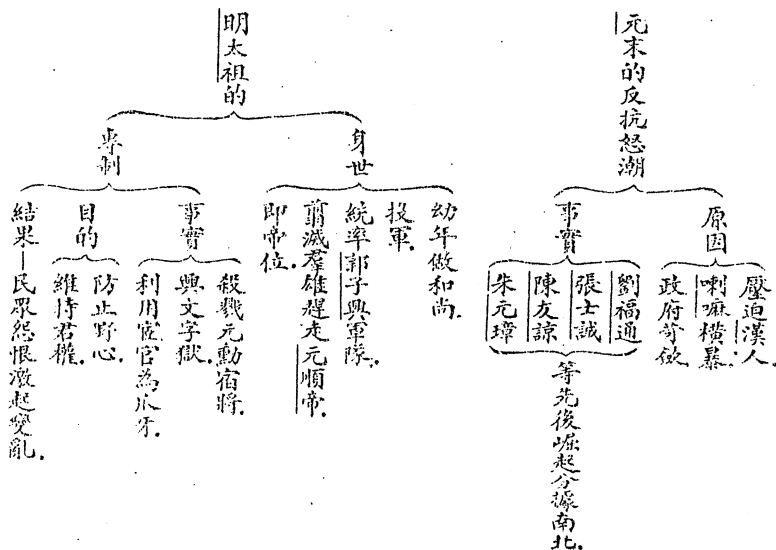 元末的反抗怒潮
原因
壓迫漢人.
喇嘛橫暴.
政府苛斂.
事實
劉福通
張士誠
陳友諒
朱元璋
等先後崛起分據南北.
明太祖的
身世
幼年做和尚.
投軍.
統率郭子興軍隊.
翦滅羣雄趕走元順帝.
即帝位.
專制
事實
殺戮元勳宿將.
興文字獄.
利用宦官為爪牙.
目的
防止野心.
維持君權.
結果—民眾怨恨激起變亂.